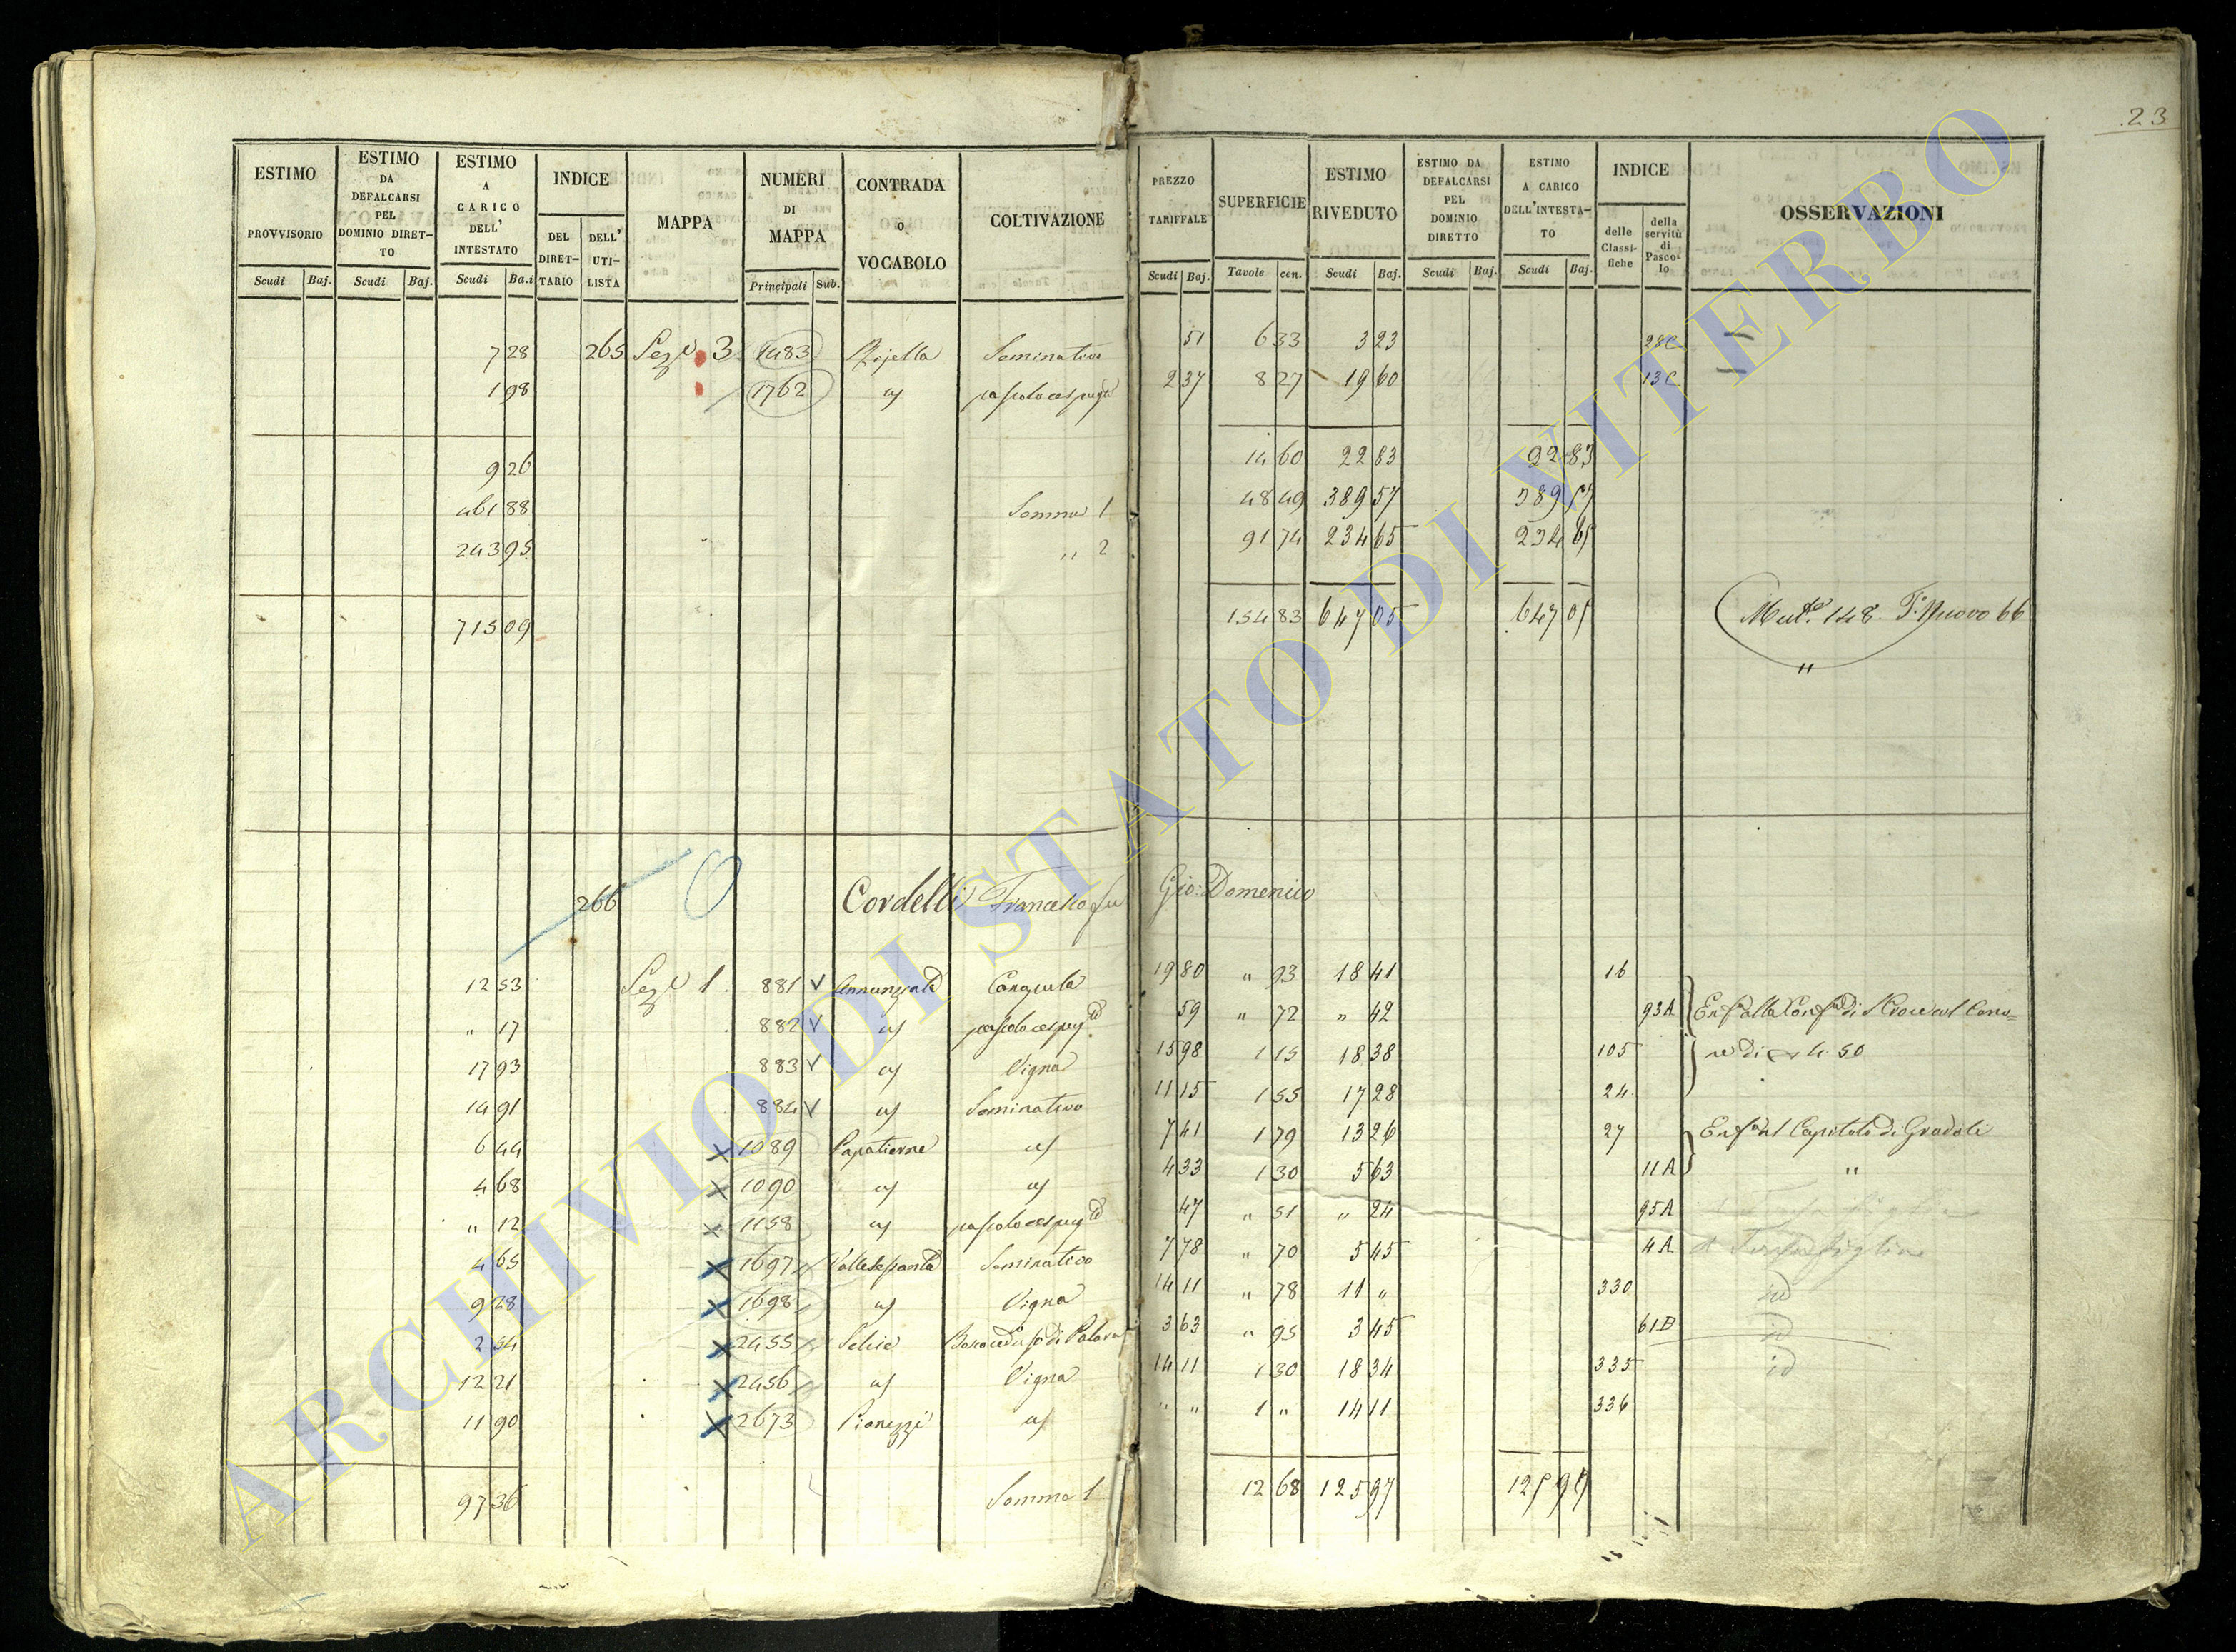 23
ESTIMO PROVVISORIO Scudi Baj.
ESTIMO DA DEFALCARSI PEL DOMINIO DIRETTO Scudi Baj.
ESTIMO A CARICO DELL' INTESTATO Scudi Ba.i
INDICE DEL DIRETTARIO DELL' UTILISTA
MAPPA
NUMERI DI MAPPA Principali Sub.
CONTRADA O VOCABOLO
COLTIVAZIONE
PREZZO TARIFFALE Scudi Baj.
SUPERFICIE Tavole cen.
ESTIMO RIVEDUTO Scudi Baj.
ESTIMO DA DEFALCARSI PEL DOMINIO DIRETTO Scudi Baj.
ESTIMO A CARICO DELL'INTESTATO Scudi Baj.
INDICE delle Classifiche della servitù di Pascolo
OSSERVAZIONI
7 28 265 Sez.e 3 1483 Seminativo 51 6 33 3 23 28C
1 98 1762 pascolo cespugto 2 37 8 27 19 60 13C
9 26 14 60 22 83 22 83
461 88 Somma 1 48 49 389 57 389 57
243 95 " 2 91 74 234 65 234 65
715 09 154 83 647 05 647 05 Mut.e 148. P. Nuovo 66
"
266 Cordelli Francesco fu Gio: Domenico
12 53 Sez.e 1. 881 V Annunziata Canapula 19 80 " 93 18 41 16
" 17 882 V " pascolo cespugto 59 " 72 " 42 93A
17 93 883 V " Vigna 15 98 1 15 18 38 105 50
14 91 884 V " Seminativo 11 15 1 55 17 28 24
6 44 X 1089 " 7 41 1 79 13 26 27 Enfa al Capitolo di Gradoli
4 68 X 1090 " " 4 33 1 30 5 63 11A "
" 12 X 1158 " pascolo cespugto 47 " 51 " 24 95A
4 65 X 1697 Seminativo 7 78 " 70 5 45 4A
9 28 X 1698 " Vigna 14 11 " 78 11 " 330 id
2 54 X 2455 Felice 3 63 " 95 3 45 61B id
12 21 X 2456 " Vigna 14 11 1 30 18 34 335 id
11 90 X 2673 Pianezzi " " " 1 " 14 11 336
97 36 Somma 1 12 68 125 97 125 97
ARCHIVIO DI STATO DI VITERBO